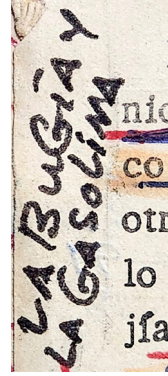 LA BUGÍA Y
LA GASOLINA
nic
co
otr
lo
jſa